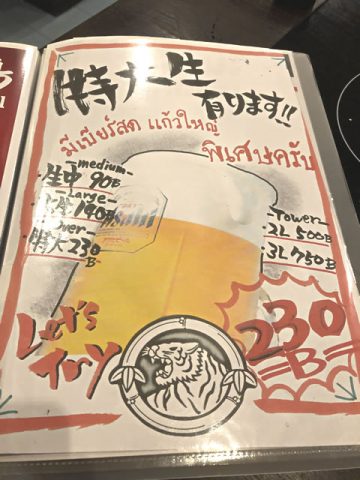 特大生
有ります!!
มีเบียร์สด แก้วใหญ่
พิเศษครับ
-medium-
生中 90B
-Large-
生大 140B
-over-
特大 230
B-
-Tower-
2L 500B
3L 750B
Let's
Try
230
B